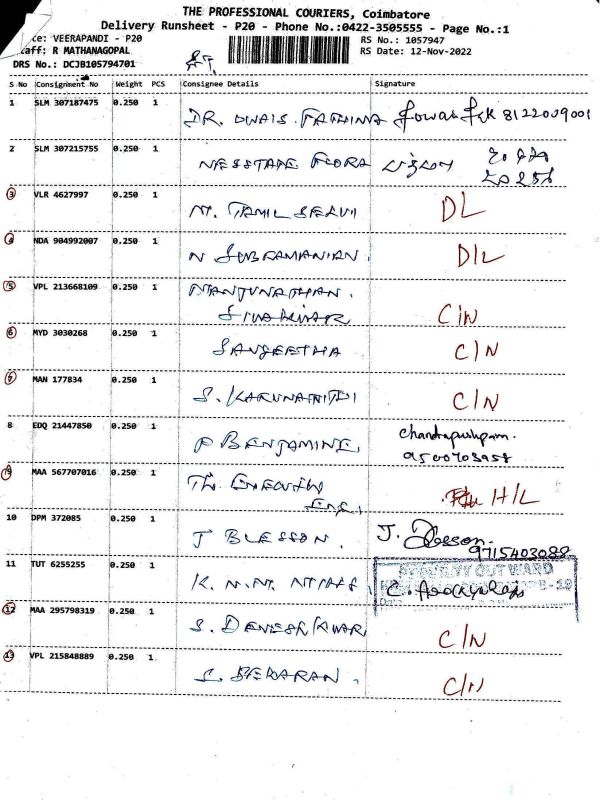 THE PROFESSIONAL COURIERS, Coimbatore
Delivery Runsheet - P20 - Phone No.:0422-3505555 - Page No.:1
ce: VEERAPANDI - P20 RS No.: 1057947
taff: R MATHANAGOPAL RS Date: 12-Nov-2022
DRS No.: DCJB105794701
S No Consignment No Weight PCS Consignee Details Signature
1 SLM 307187475 0.250 1 DR. OWAIS. FATHIMA 8122009001
2 SLM 307215755 0.250 1 FLORA
3 VLR 4627997 0.250 1 M. TAMIL SELVI DL
4 NDA 904992007 0.250 1 N SUBRAMANIAN. D/L
5 VPL 213668109 0.250 1 MANJUNATHAN.
SIVAKUMAR C/N
6 MYD 3030268 0.250 1 SANGEETHA C/N
7 MAN 177834 0.250 1 S. KARUNANITHI C/N
8 EDQ 21447850 0.250 1 P BENJAMINE, Chandrapushpam.
9500703958
9 MAA 567707016 0.250 1 The EXECUTIVE
ENG. H/L
10 DPM 372085 0.250 1 J BLESSON. J. Blesson.
9715403088
11 TUT 6255255 0.250 1 K. M. M. SECURITY OUT WARD
C. Arockyaraj
12 MAA 295798319 0.250 1 S. DENESH KUMAR C/N
13 VPL 215848889 0.250 1 S. SEKARAN. C/N